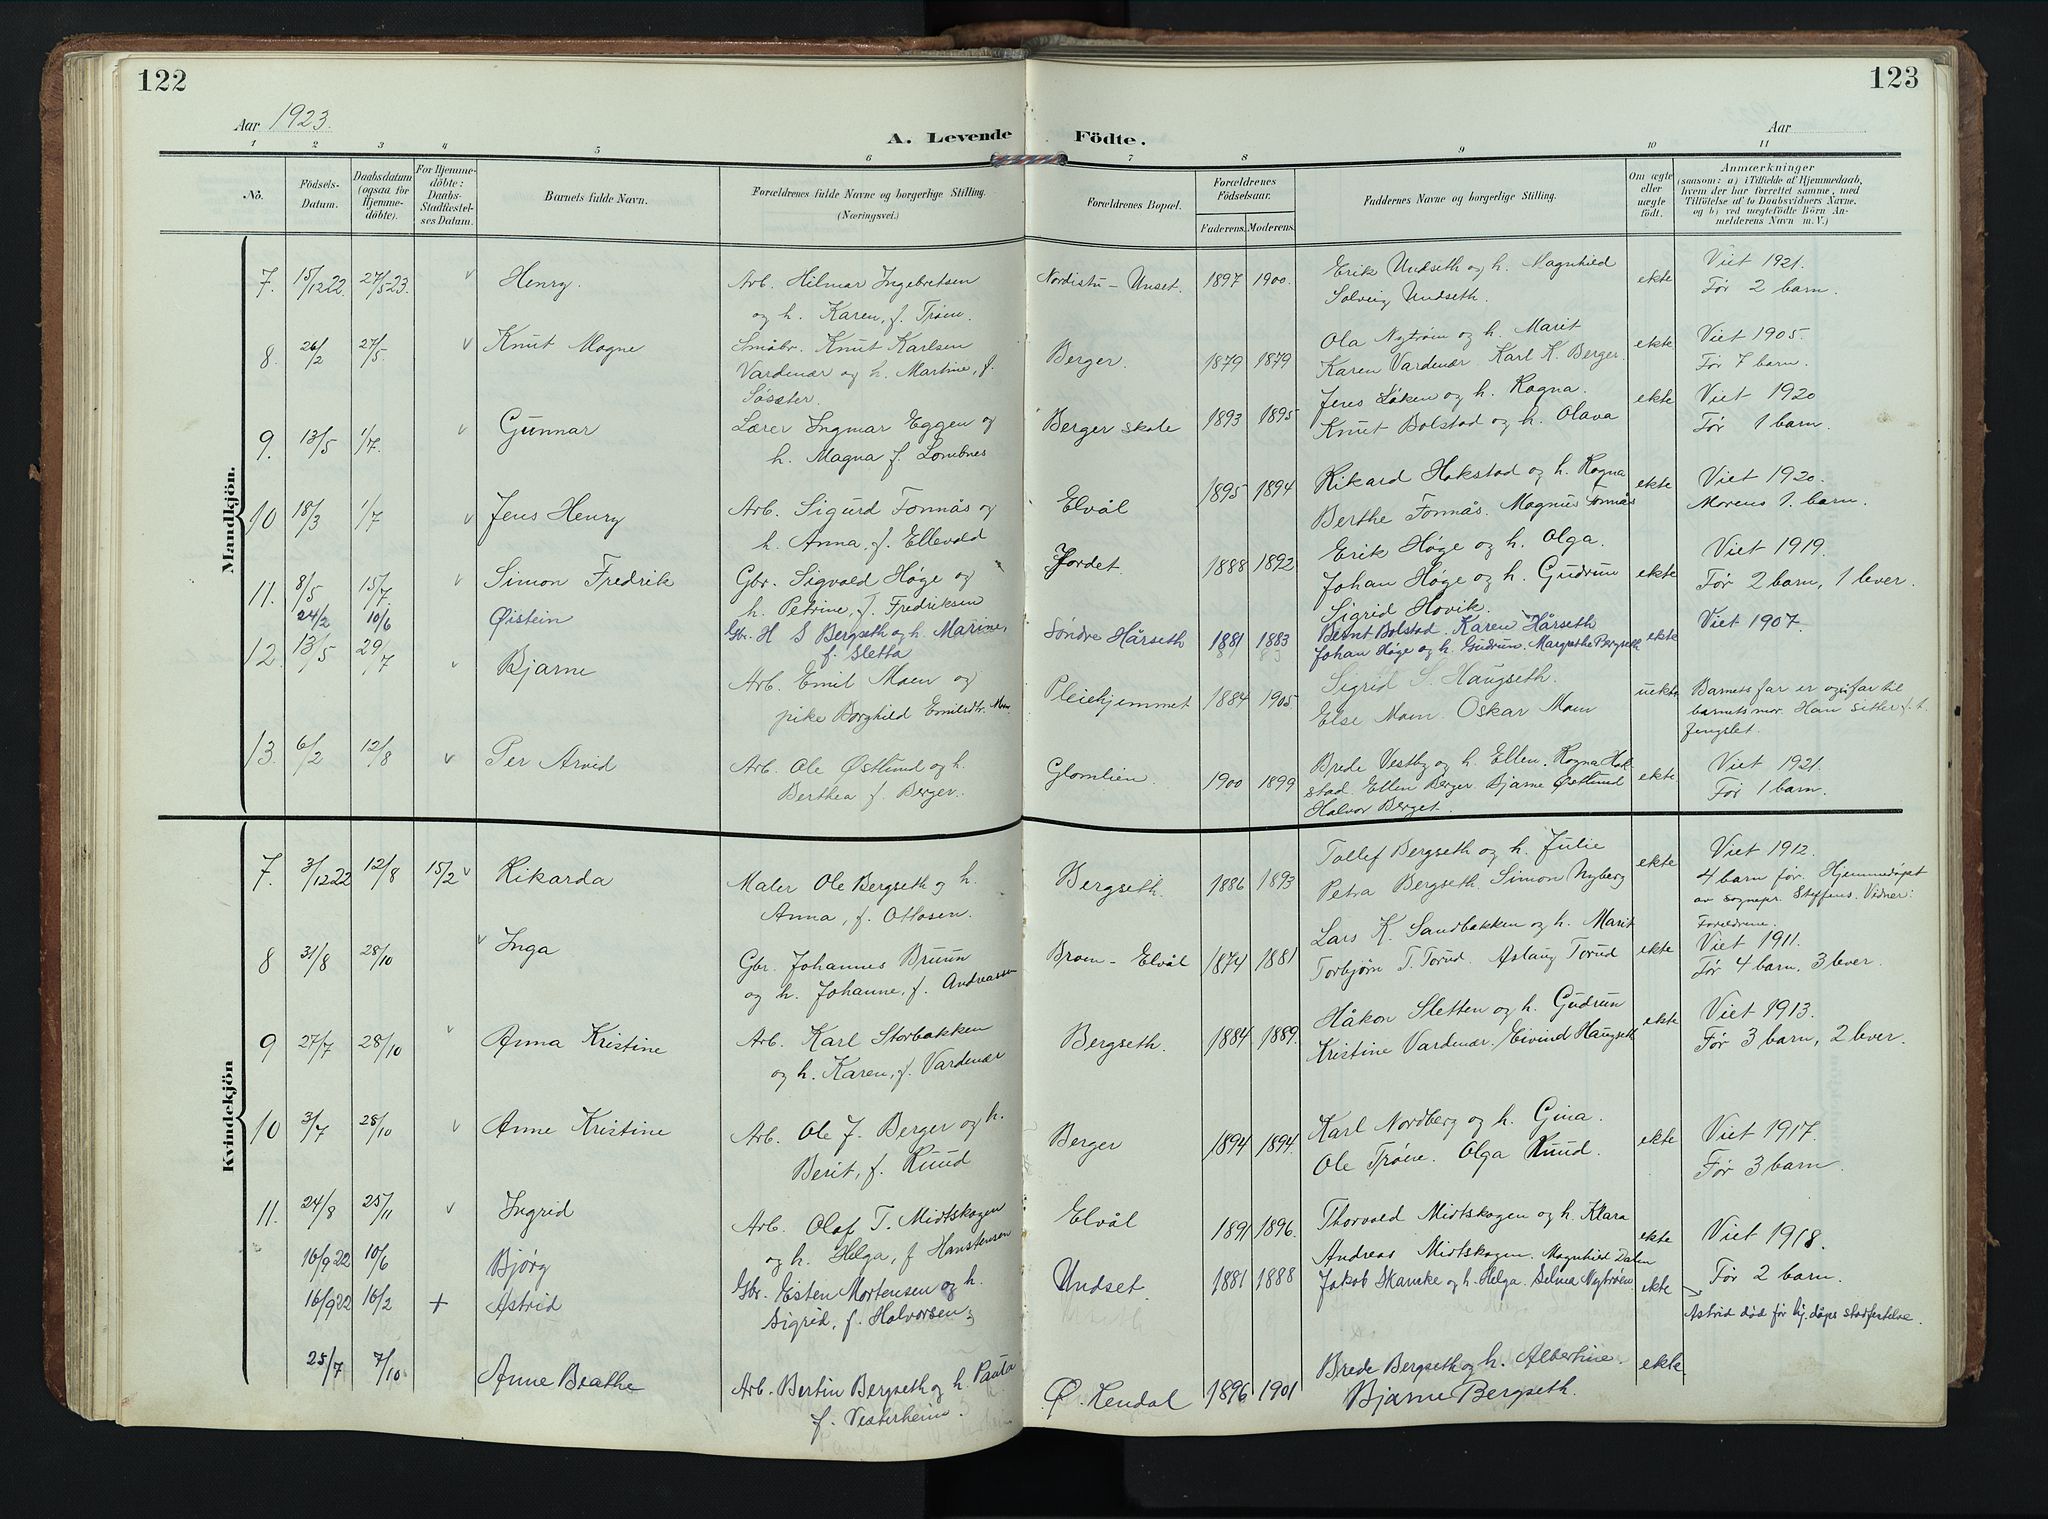 122
123
Aar 1923.
A. Levende Födte.
Aar
1 2 3 4 5 6 7 8 9 10 11
No.
Födsels-Datum.
Daabsdatum (ogsaa för Hjemmedöbte).
For Hjemmedöbte: Daabs-Stadfæstelses Datum.
Barnets fulde Navn.
Forældrenes fulde Navne og borgerlige Stilling. (Næringsvei.)
Forældrenes Bopæl.
Forældrenes Födselsaar.
Faderens. Moderens.
Faddernes Navne og borgerlige Stilling.
Om ægte eller uægte födt.
Anmærkninger
(saasom: a) i Tilfælde af Hjemmedaab, hvem der har forrettet samme, med Tilföielse af to Daabsvidners Navne, og b) ved uægtefödte Börn Anmelderens Navn m. V.)
Mandkjön.
7. 15/12 22 27/5 23. v Henry. Arb. Hilmar Ingebretsen Nordistu - Unset. 1897 1900. Erik Undseth og h. Magnhild ekte Viet 1921.
og h. Karen, f. Trøen. Solveig Undseth. Før 2 barn.
8. 26/2 27/5 v Knut Magne Småbr. Knut Karlsen Berger. 1879 1879 Ola Nytrøen og h. Marit ekte Viet 1905.
Vardenær og h. Martine, f. Karen Vardenær. Karl K. Berger. Før 7 barn.
Søsster.
9. 13/5 1/7. v Gunnar Lærer Ingmar Eggen og Berger skole 1893 1895 Jens Løken og h. Ragna. ekte Viet 1920
h. Magna f. Lombnes Knut Bolstad og h. Olava Før 1 barn.
10 18/3 1/7 v Jens Henry Arb. Sigurd Fonnås og Elvål 1895 1894 Rikard Hakstad og h. Ragna ekte Viet 1920.
h. Anna, f. Ellevold Berthe Fonnås. Magnus Fonnås Morens 1. barn.
11. 8/5 15/7 v Simon Fredrik Gbr. Sigvald Høge og Jordet 1888 1892 Erik Høge og h. Olga. ekte Viet 1919.
h. Petrine, f. Fredriksen Johan Høge og h. Gudrun Før 2 barn, 1 lever.
Sigrid Hovik.
24/2 10/6 Øistein Gbr. H S Bergseth og h. Marine, Søndre Hårseth 1881 1883 Bernt Bolstad. Karen Hårseth ekte Viet 1907.
f. Sletta Johan Høge og h. Gudrun. Margrethe Bergseth
12. 13/5 29/7 v Bjarne Arb. Emil Moen og Pleiehjemmet 1884 1905 Sigrid S. Haugseth. uekte Barnets far er også far til
pike Borghild Emilsdtr. Moen Else Moen. Oskar Moen barnets mor. Han sitter f. t.
fengslet.
13. 6/2 12/8 v Per Arvid Arb. Ole Østlund og h. Glomlien. 1900 1899 Brede Vestby og h. Ellen. Ragna Hak- ekte Viet 1921.
Berthea f. Berger. stad. Ellen Berger. Bjarne Østlund Før 1 barn.
Halvor Berget.
Kvindekjön
7. 3/12 22 12/8 15/2 v Rikarda Maler Ole Bergseth og h. Bergseth. 1886 1893 Tollef Bergseth og h. Julie ekte Viet 1912.
Anna, f. Ottosen. Petra Bergseth. Simon Nyberg 4 barn før. Hjemmedøpt
av sognepr. Steffens. Vidner:
Foreldrene.
8 31/8 28/10 v Inga Gbr. Johannes Bruun Broen - Elvål 1874 1881 Lars K. Sandbakken og h. Marit ekte Viet 1911.
og h. Johanne, f. Andreassen Torbjørn T. Torud. Aslaug Torud Før 4 barn, 3 lever.
9 27/7 28/10 v Anna Kristine Arb. Karl Storbakken Bergseth. 1884 1889. Håkon Sletten og h. Gudrun ekte Viet 1913.
og h. Karen, f. Vardenær Kristine Vardenær. Eivind Haugseth Før 3 barn, 2 lever.
10 3/7 28/10 v Anne Kristine Arb. Ole J. Berger og h. Berger 1894 1894. Karl Nordberg og h. Gina. ekte Viet 1917.
Berit, f. Ruud Ole Trøen. Olga Ruud. Før 3 barn.
11. 24/8 25/11 v Ingrid Arb. Olaf T. Midtskogen Elvål 1891 1896. Thorvald Midtskogen og h. Klara ekte Viet 1918.
og h. Helga, f. Hanstensen Andreas Midtskogen. Magnhild Dalen Før 2 barn.
16/9 22 10/6 Bjørg Gbr. Esten Mortensen og h. Undset. 1881 1888 Jakob Skancke og h. Helga. Selma Nytrøen. ekte
16/9 22 16/2 + Astrid Sigrid, f. Halvorsen. Astrid død før hj. dåps stadfestelse.
25/7 7/10 Anne Beathe Arb. Bertin Bergseth og h. Paula Ø. Rendal 1896 1901 Brede Bergseth og h. Albertine. ekte
f. Vesterheim. Bjarne Bergseth.